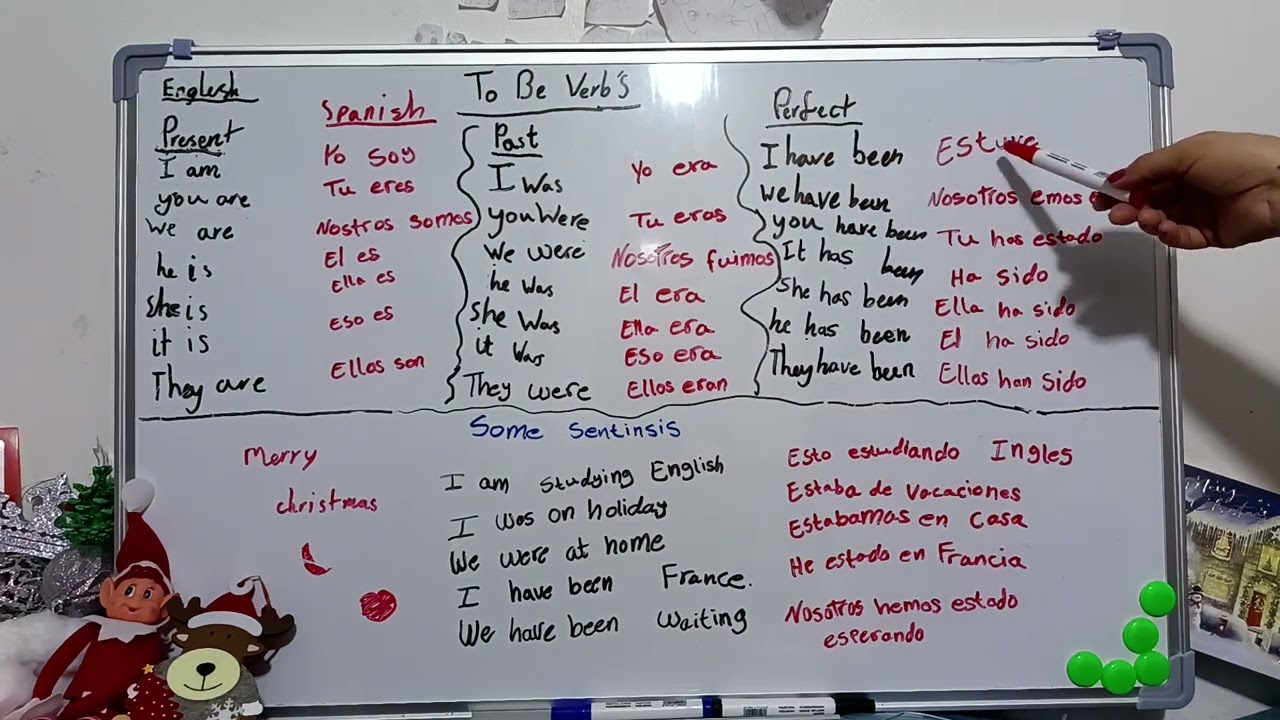 To Be Verb's
English
Spanish
Present
I am
you are
we are
he is
she is
it is
They are
Yo soy
Tu eres
Nostros somos
El es
Ella es
Eso es
Ellos son
Past
I was
you were
we were
he was
she was
it was
They were
Yo era
Tu eras
Nosotros fuimos
El era
Ella era
Eso era
Ellos eran
Perfect
I have been
we have been
you have been
It has been
She has been
he has been
They have been
Nosotros emos
Tu has estado
Ha sido
Ella ha sido
El ha sido
Ellos han sido
Some Sentinsis
Merry
christmas
I am studying English
I was on holiday
We were at home
I have been France.
We have been waiting
Esto estudiando Ingles
Estaba de vacaciones
Estabamos en casa
He estado en Francia
Nosotros hemos estado
esperando